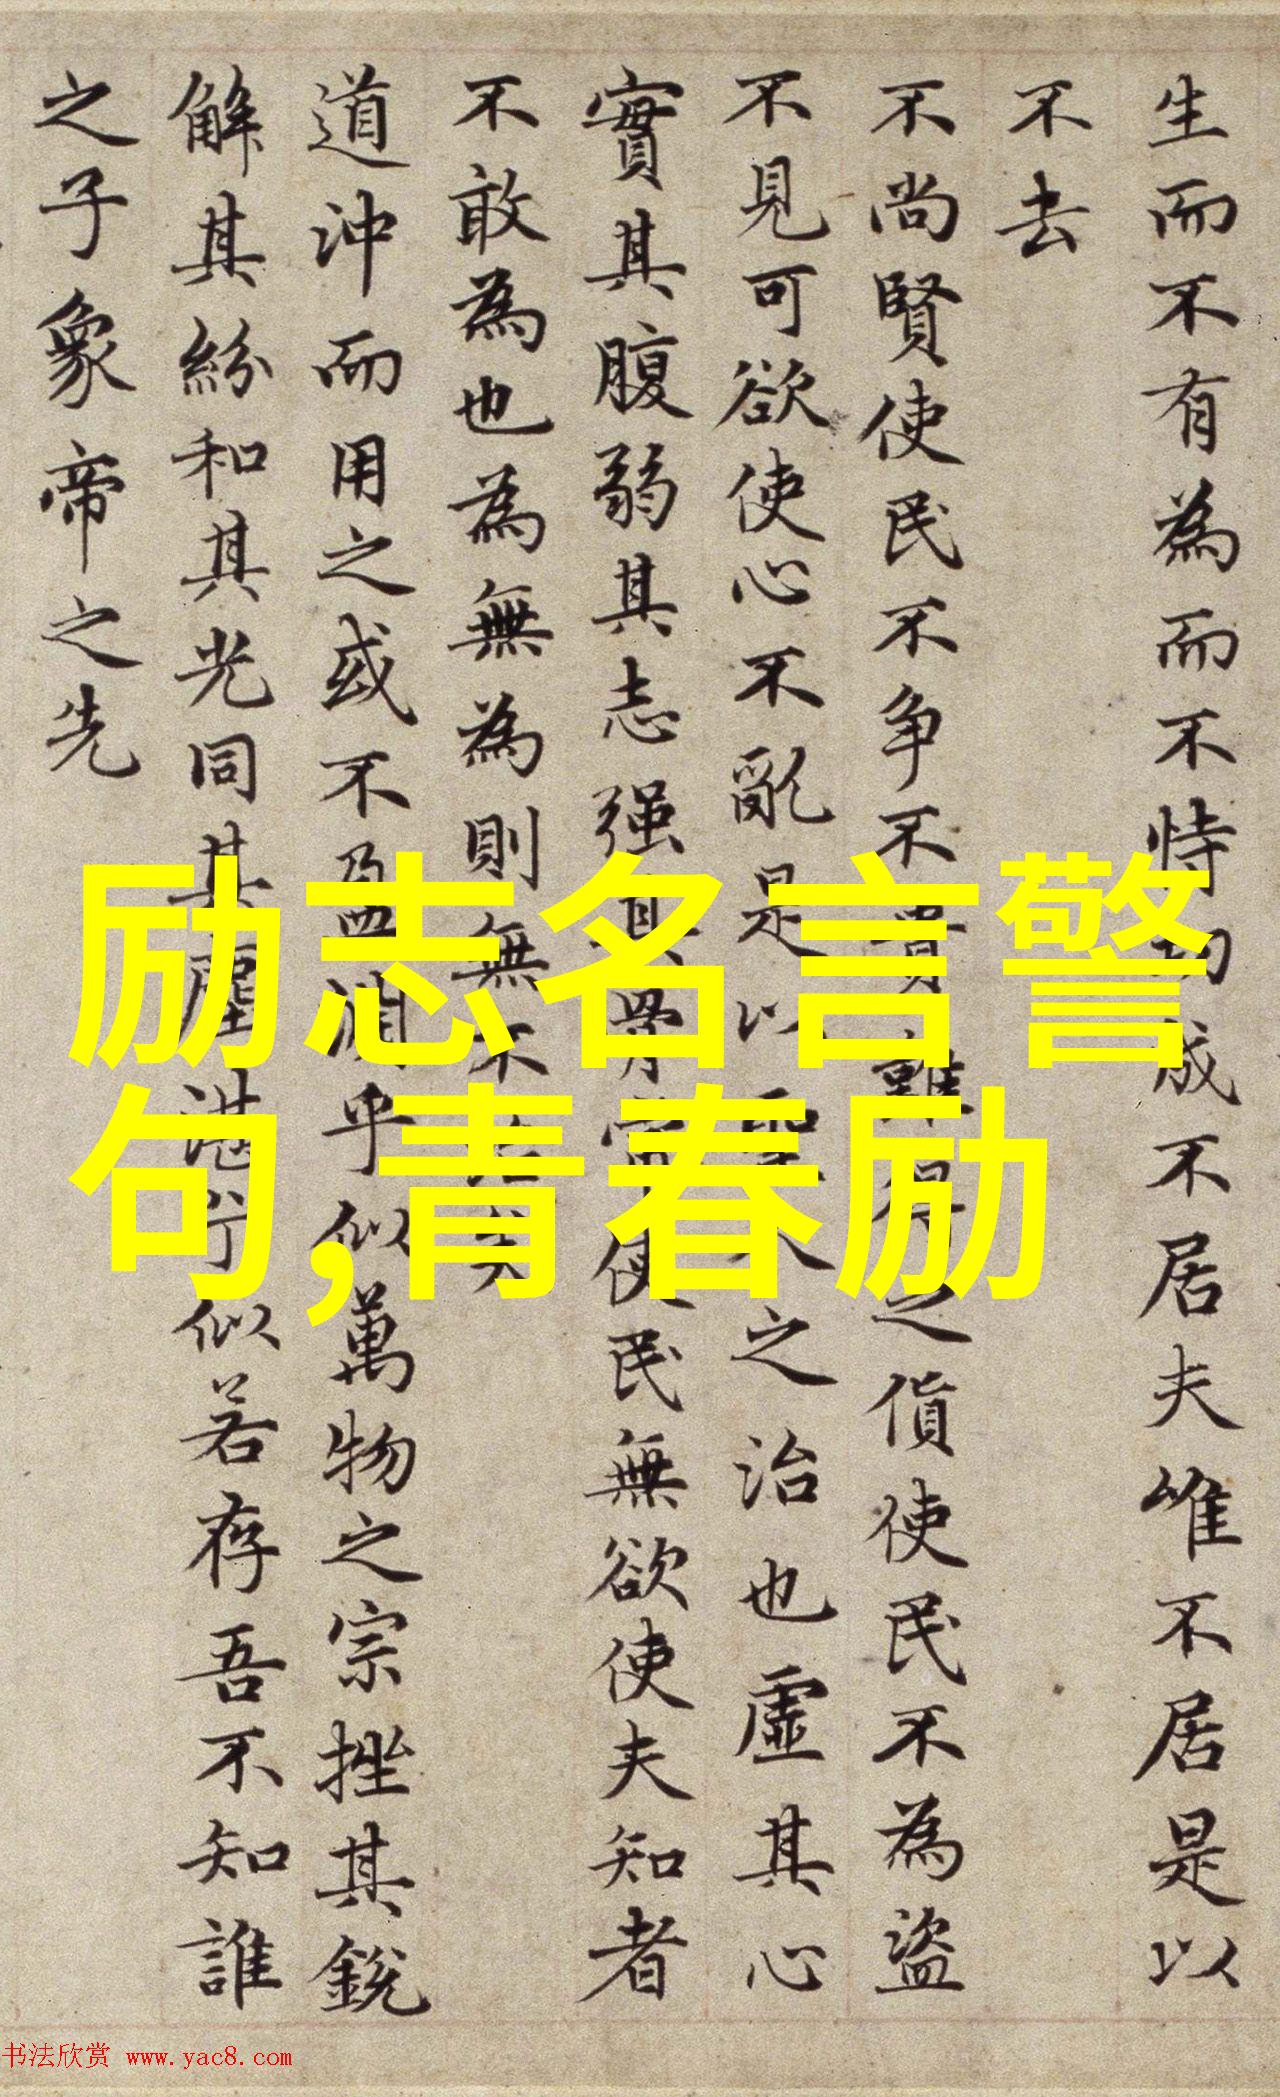 生而不有為而不恃功成不居夫唯不居是以
不去
不尚賢使民不争不貴難得之貨使民不為盜
不見可欲使心不亂是以聖人之治也虛其心
實其腹弱其志强其骨常使民無欲使夫知者
不敢為也為無為則無不治矣
道沖而用之或不盈淵乎似萬物之宗挫其銳
解其紛和其光同其塵湛兮似若存吾不知誰
之子象帝之先
励志名言警
句,青春励
书法欣赏 www.yac8.com